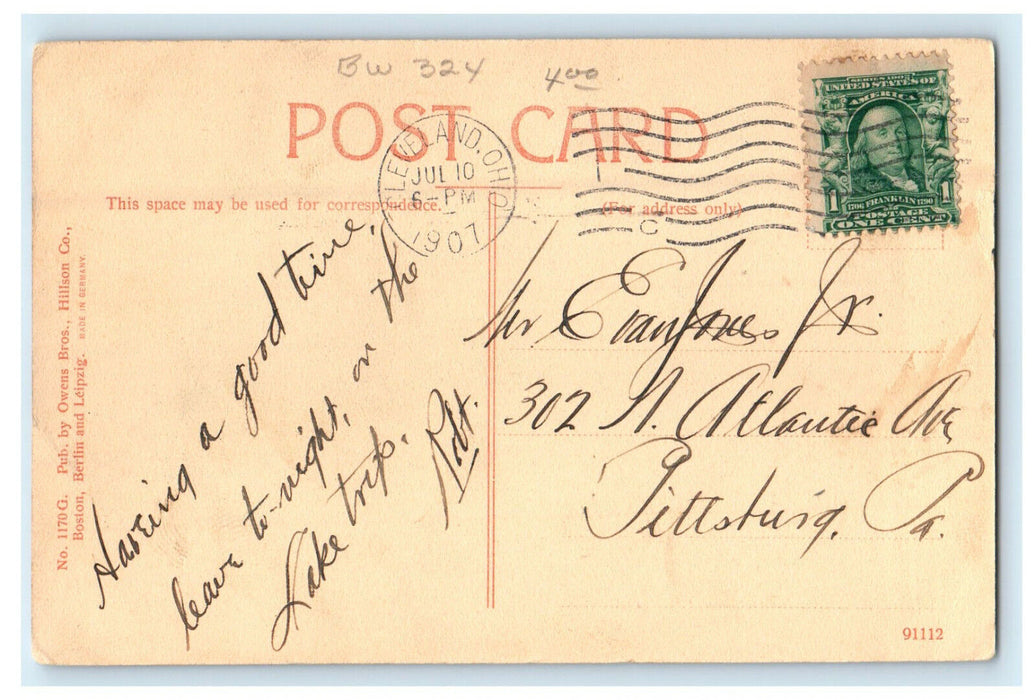 BW 324 4.00
POST CARD
CLEVELAND, OHIO
JUL 10
6-PM
1907
C
SERIES 1902
UNITED STATES OF
AMERICA
1 1
1706 FRANKLIN 1790
POSTAGE
ONE CENT
This space may be used for correspondence.
(For address only)
No. 1170G. Pub. by Owens Bros., Hillson Co.,
Boston, Berlin and Leipzig. MADE IN GERMANY.
Having a good time,
leave to-night, on the
Lake trip.
Robt.
Mr Evan Jones Jr.
302 N. Atlantic Ave
Pittsburg, Pa.
91112